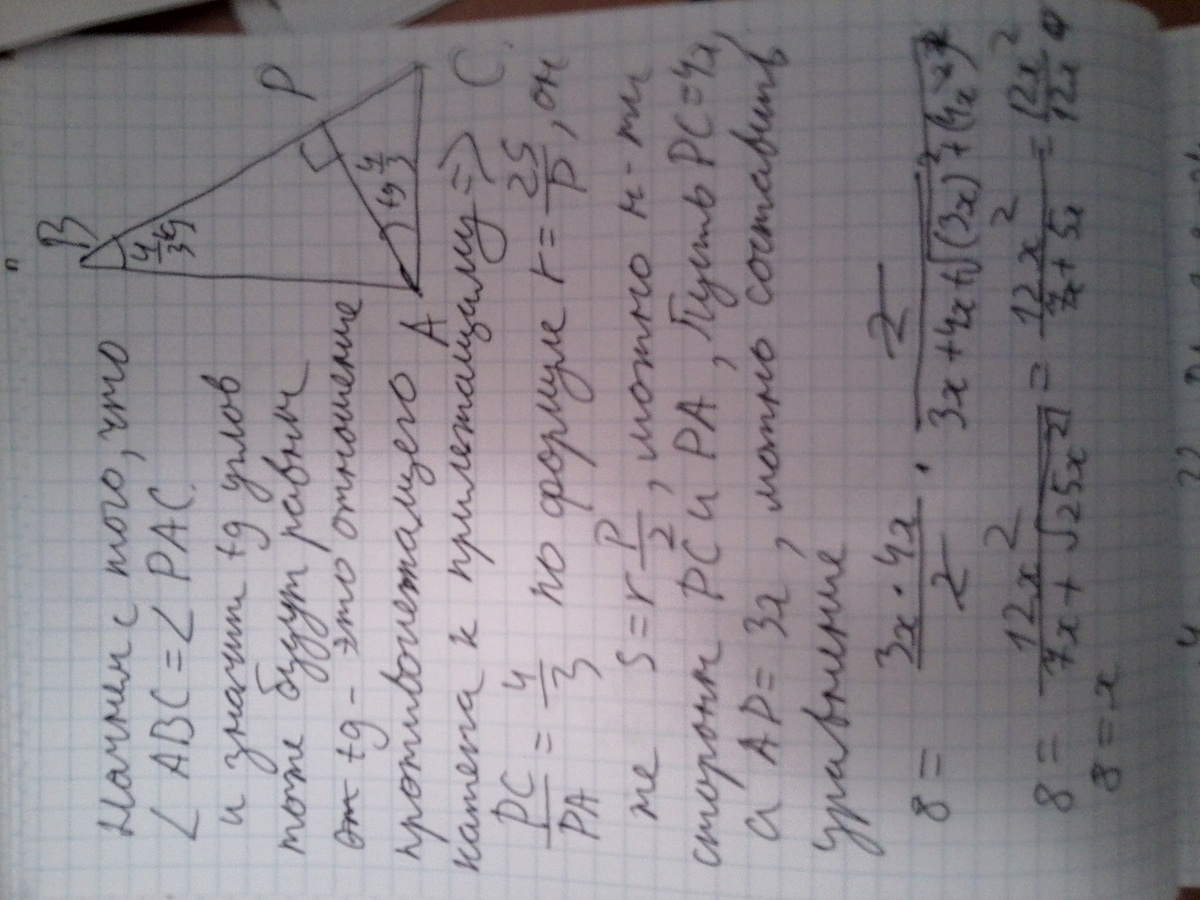 Начнем с того, что
∠ ABC = ∠ PAC.
и значит tg углов
тоже будут равны
tg - это отношение
противолежащего
катета к прилежащиму =>
PC/PA = 4/3 по формуле r = 2S/P, он
же S = r P/2, можно н-ти
стороны PC и PA, Пусть PC = 4x,
а AP = 3x, можно составить
уравнение
8 = 3x · 4x / 2 · 2 / 3x + 4x + √(3x)² + (4x)²
8 = 12x² / 7x + √25x² = 12x² / 7x + 5x = 12x² / 12x
8 = x
B
4/3 tg
P
tg 4/3
A
C